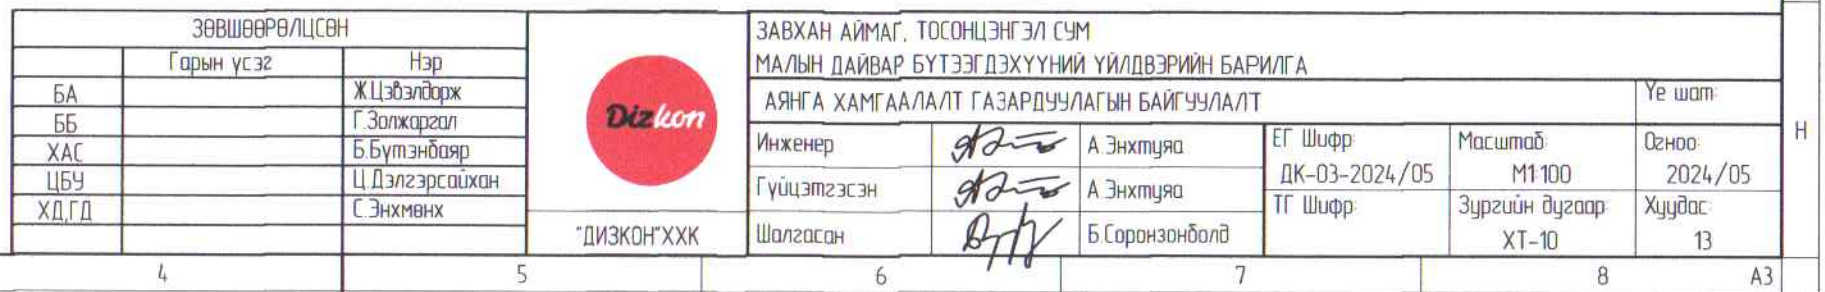 ЗӨВШӨӨРӨЛЦСӨН
Гарын үсэг Нэр
БА Ж.Цэвэлдорж
ББ Г.Золжаргал
ХАС Б.Бүтэнбаяр
ЦБУ Ц.Дэлгэрсайхан
ХД,ГД С.Энхмөнх
Dizkon
"ДИЗКОН"ХХК
ЗАВХАН АЙМАГ, ТОСОНЦЭНГЭЛ СУМ
МАЛЫН ДАЙВАР БҮТЭЭГДЭХҮҮНИЙ ҮЙЛДВЭРИЙН БАРИЛГА
АЯНГА ХАМГААЛАЛТ ГАЗАРДУУЛАГЫН БАЙГУУЛАЛТ
Үе шат:
Инженер А.Энхтуяа
Гүйцэтгэсэн А.Энхтуяа
Шалгасан Б.Соронзонболд
ЕГ Шифр:
ДК-03-2024/05
ТГ Шифр:
Масштаб:
М1:100
Зургийн дугаар:
ХТ-10
Огноо:
2024/05
Хуудас:
13
Н
4 5 6 7 8 А3